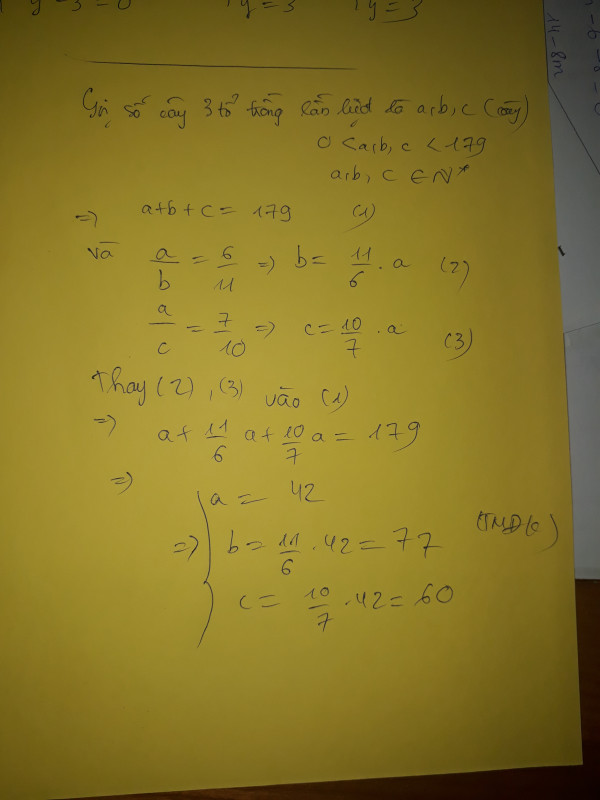 y = 3
y = 3
14-8m
Gọi số cây 3 tổ trồng lần lượt là a,b,c (cây)
0 < a,b, c < 179
a,b, c ∈ N*
=> a+b+c = 179 (1)
và a/b = 6/11 => b = 11/6 . a (2)
a/c = 7/10 => c = 10/7 . a (3)
Thay (2), (3) vào (1)
=> a + 11/6 a + 10/7 a = 179
=>
=> { a = 42
b = 11/6 . 42 = 77 (TMĐK)
c = 10/7 . 42 = 60